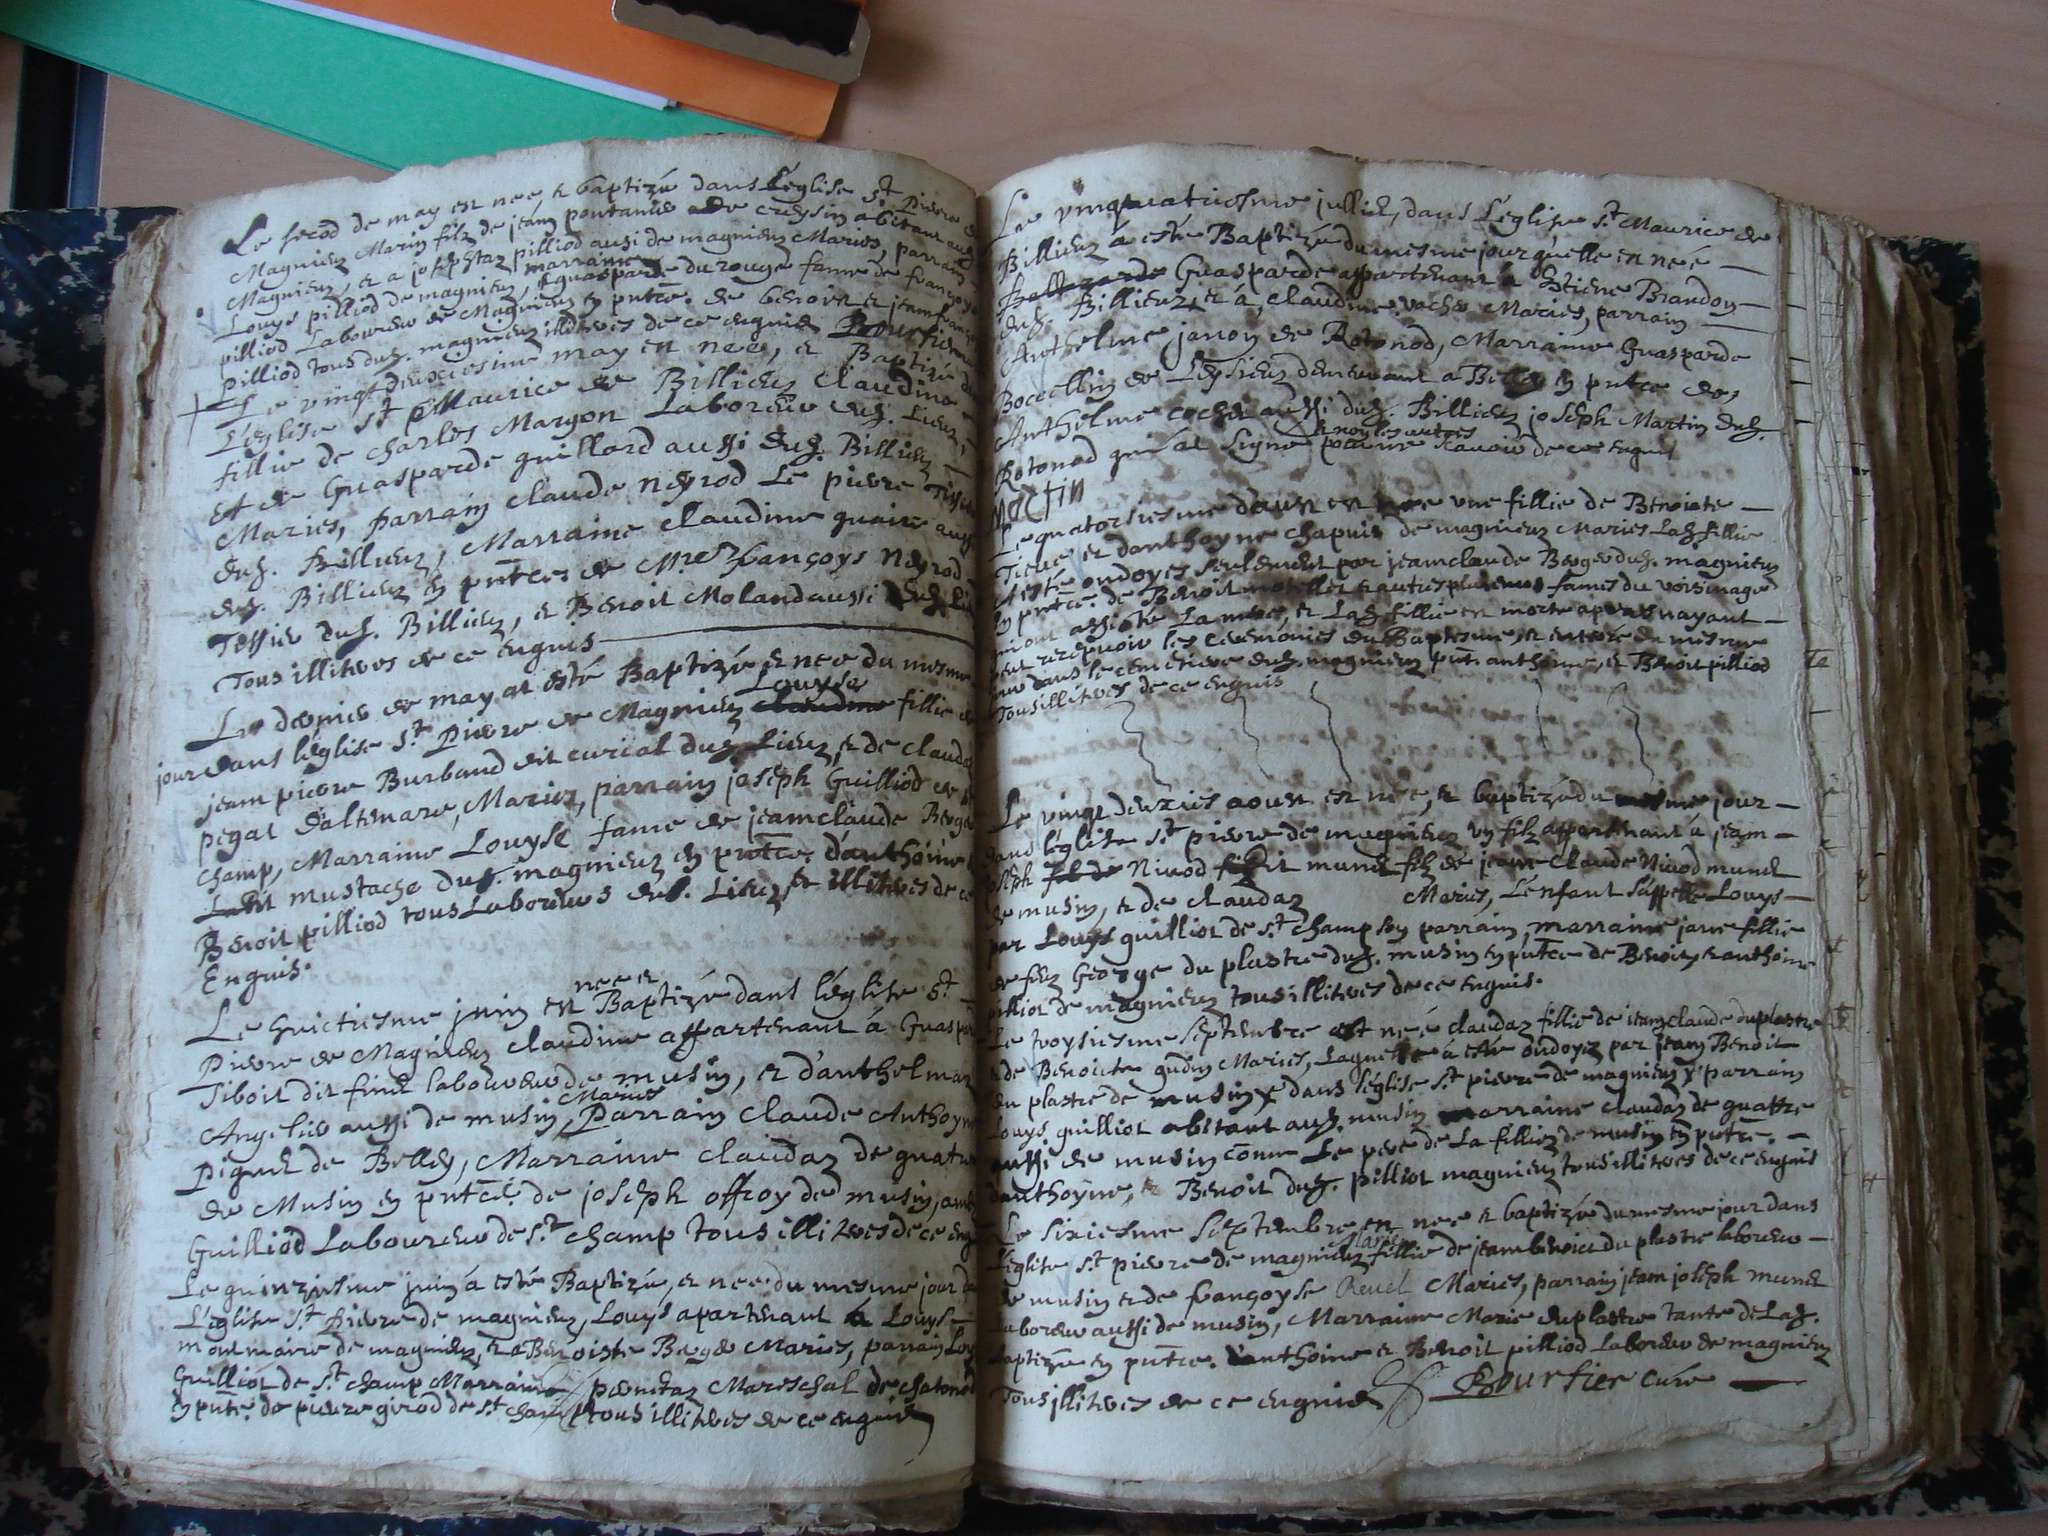 Le secod de may est nee & baptizé dans Léglise St. Pierre de
Magnieu Marin filz de jean pontanier de creysin abitant aud.
Magnieu, & a josephtaz pilliod aussi de magnieu Maries, parrain
Louys pilliod de magnieu, marraine guasparde du rouge fame de françoys
pilliod Laboureur de Magnieu en putce. de benoit & jeamfrançoys
pilliod tous dud. magnieu illitres de ce enquis Bourfier
Le vingt deuxiesme may est nee, & Baptizée da
Léglise St. Maurice de Billieu Claudine
fillie de Charles Margon Laboreur dud. Lieu,
Et de Guasparde guillard aussi dud. Billieu
Maries, parrain Claude neyrod Le pierre
dud. Billieu, Marraine Claudine quaire aussi
dud. Billieu en putce. de Mre. françoys neyrod
Tessier dud. Billieu, & Benoit Moland aussi dud. Lieu
Tous illitres de ce enquis
Le dernier de may at esté Baptizée & nee du mesme
jour dans léglise St. Pierre de Magnieu Louyse fillie de
jeam pierre Burband dit curial dud. Lieu, & de Claudaz
pegat d'altemare, Maries, parrain joseph Guilliod de St
champ, Marraine Louyse fame de jeamclaude Berger
Ludit mustache dud. magnieu en putce. d'anthoine &
Benoit pilliod tous Laboreurs dud. Lieu, & illitres de ce
Enquis.
Le huictiesme juin est nee & Baptizée dans léglise St.
Pierre de Magnieu Claudine appartenant á Guaspard
Tiboit dit finet laboureur de musin, & d'anthelmaz
Angelier aussi de musin, Maries Parrain Claude Anthoyne
piguet de Belley, Marraine Claudaz de quatre
de Musin en putce. de joseph offroy de musin, &
Guilliod Laboureur de St. champ tous illitres de ce enq
Le quinziesme juin á esté Baptizé, & nee du mesme jour da
L'église St. Pierre de magnieu, Louys apartenant á Louys
montmaire de magnieu, & a Benoiste Berger Maries, parrain Louys
Guilliot de St. champ Marraine pernetaz Mareschal de chatonod
en putce. de pierre girod de St. champ tous illitres de ce enquis
Le vinquatriesme julliet, dans L'église St. Maurice de
Billieu á esté Baptizée du mesme jour qu'elle est née
Guasparde appartenant á Etiene Brandon
dud. Billieu, & á Claudine vache Maries, parrain
Anthelme janon de Rotonod, Marraine Guasparde
Bocellin de Leysieu demeurant a Billieu en putce de
Anthelme coche aussi dud. Billieu joseph Martin dud.
Rotonod qui at signé & non les autres pour ne scavoir de ce enquis
MARTIN
Le quatorsiesme daoust est nee une fillie de Benoiste
Tieve & d'anthoyne chapuis de magnieu Maries Lad. fillie
A esté ondoyée seulement par jeamclaude Berger dud. magnieu
en putce. de Benoit & autres plusieurs fames du voisinage
qui ont assisté La mere, & Lad. fillie est morte apres nayant
peut recepvoir les ceremonies du Baptesme, & enterée du mesme
jour dans le cemetiere dud. magnieu put. anthoine, & Benoit pilliod
Tous illitres de ce enquis
Le vingt deuxies aoust est nee, & baptizé du mesme jour
dans léglise St. pierre de magnieu un filz appartenant á jeam
joseph Nivod dit munet filz de jeam claude Nivod munet
de musin, & de claudaz Maries, L'enfant s'appelle Louys
par Louys guilliot de St. champ son parrain, marraine jane fillie
de feu George du plastre dud. musin en putce de Benoit, & anthoine
pilliot de magnieu tous illitres de ce enquis.
Le troysiesme septembre est neé claudaz fillie de jeamclaude duplastre
& de Benoiste gudin Maries, Laquelle á esté ondoyez par jeam Benoit
du plastre de musin & dans l'église St. pierre de magnieu parrain
Louys guilliot abitant aud. musin marraine claudaz de quatre
aussi de musin come Le pere de La fillie de musin en putce.
d'anthoyne, & Benoit dud. pilliot magnieu tous illitres de ce enquis
Le sixiesme septembre est nee & baptizée du mesme jour dans
L'église St. pierre de magnieu Marie fillie de jeambenoit du plastre laboreur
de musin & de françoyse Revel Maries, parrain jeam joseph munet
Laboreur aussi de musin, Marraine Marie duplastre tante de Lad.
baptizée en putce. d'anthoine & Benoit pilliod Laboreur de magnieu
Tous illitres de ce enquis Bourfier Curé